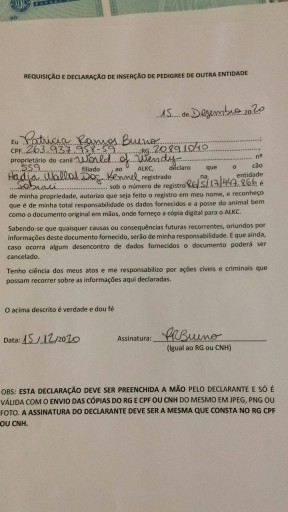 REQUISIÇÃO E DECLARAÇÃO DE INSERÇÃO DE PEDIGREE DE OUTRA ENTIDADE
15 de Dezembro 2020
Eu Patricia Ramos Bueno
CPF 263.937.958-59 RG 20891040
proprietário do canil World of Wendy nº
559 filiado ao ALKC, declaro que o cão
Hadja Wallal Dog Kennel registrado na entidade
Sobraci sob o número de registro é
de minha propriedade, autorizo que seja feito o registro em meu nome, e reconheço
que é de minha total responsabilidade os dados fornecidos e a posse do animal bem
como o documento original em mãos, onde forneço a cópia digital para o ALKC.
Sabendo-se que quaisquer causas ou consequências futuras recorrentes, oriundos por
informações deste documento fornecido, serão de minha responsabilidade. E que ainda,
caso ocorra algum desencontro de dados fornecidos o documento poderá ser
cancelado.
Tenho ciência dos meus atos e me responsabilizo por ações cíveis e criminais que
possam recorrer sobre as informações aqui declaradas.
O acima descrito é verdade e dou fé
Data: 15/12/2020 Assinatura: PRBueno
(Igual ao RG ou CNH)
OBS: ESTA DECLARAÇÃO DEVE SER PREENCHIDA A MÃO PELO DECLARANTE E SÓ É
VÁLIDA COM O ENVIO DAS CÓPIAS DO RG E CPF OU CNH DO MESMO EM JPEG, PNG OU
FOTO. A ASSINATURA DO DECLARANTE DEVE SER A MESMA QUE CONSTA NO RG CPF
OU CNH.